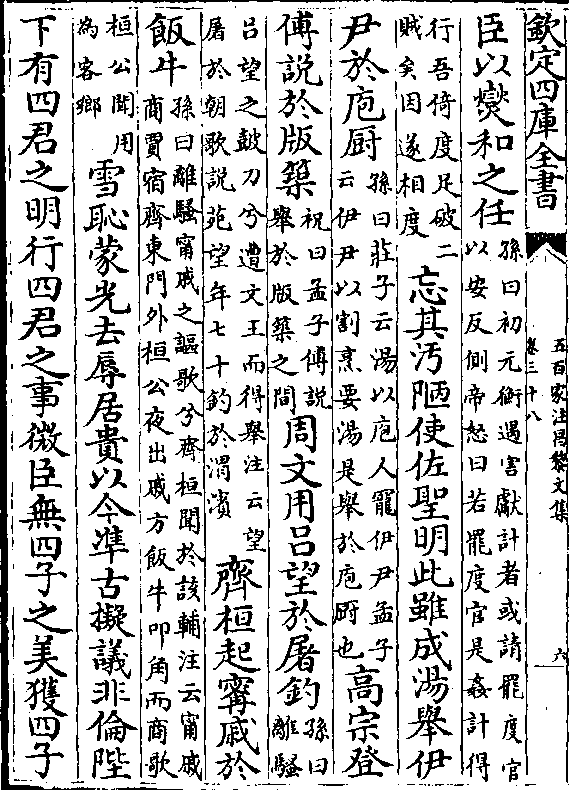 欽定四庫全書
五百家注昌黎文集
卷三十八
六
臣以燮和之任孫曰初元衡遇害獻計者或請罷度官
以安反側帝怒曰若罷度官是姦計得
行吾倚度足破二
賊矣因遂相度忘其汚陋使佐聖明此雖成湯舉伊
尹於庖厨孫曰莊子云湯以庖人寵伊尹孟子
云伊尹以割烹要湯是舉於庖厨也高宗登
傅說於版築祝曰孟子傅說
舉於版築之間周文用吕望於屠釣孫曰
離騷
吕望之鼓刀兮遭文王而得舉注云望
屠於朝歌說苑望年七十釣於渭濱齊桓起寗戚於
飯牛孫曰離騷甯戚之謳歌兮齊桓聞於該輔注云甯戚
商賈宿齊東門外桓公夜出戚方飯牛叩角而商歌
桓公聞用
為客鄉雪恥蒙光去辱居貴以今凖古擬議非倫陛
下有四君之明行四君之事微臣無四子之美獲四子